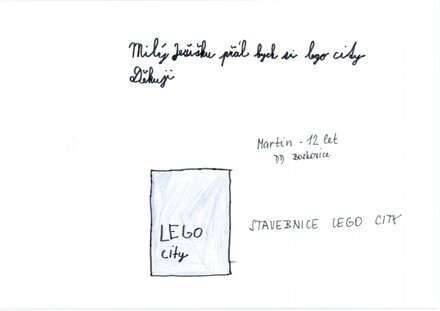 Milý Ježíšku přál bych si lego city
Děkuji
Martin - 12 let
DD Boskovice
LEGO
city
STAVEBNICE LEGO CITY